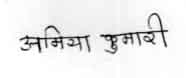 अमिया कुमारी